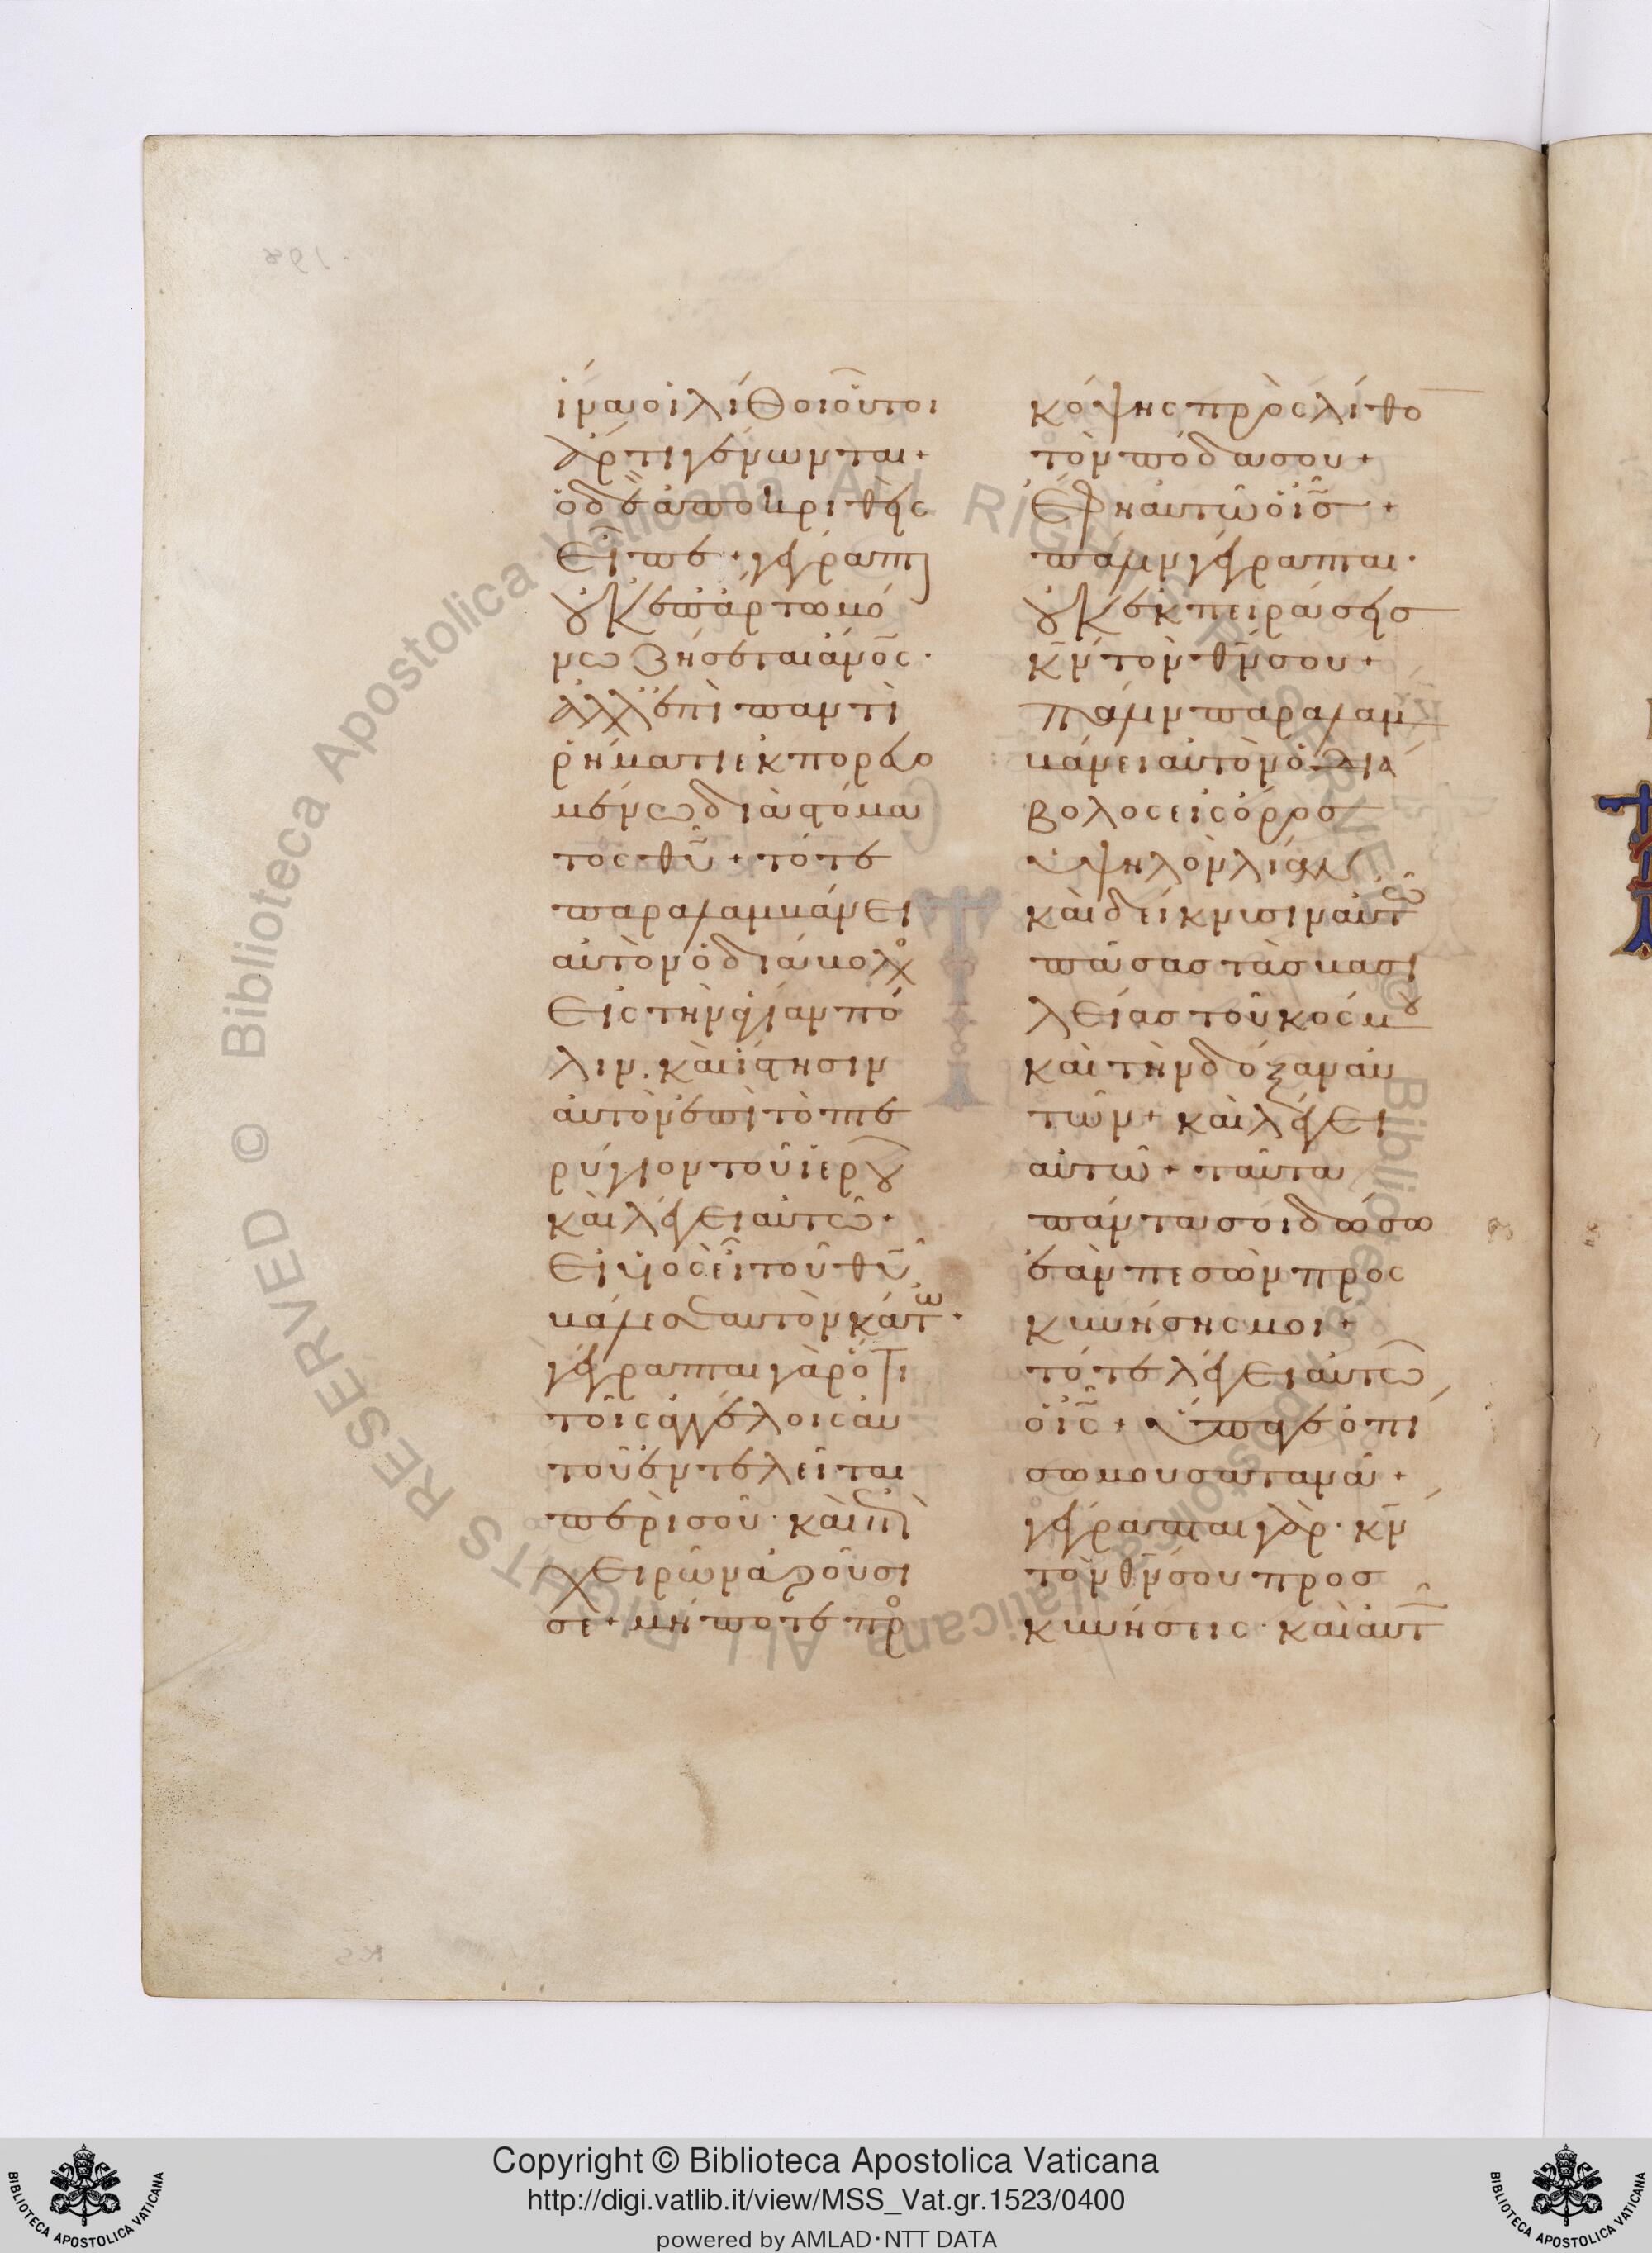 ἵνα οἱ λίθοι οὗτοι
ἄρτι γένωνται +
ὁ δὲ ἀποκριθεὶς
εἶπε + γέγραπται
οὐκ ἐπ' ἄρτω μό
νω ζήσεται ἄνος ·
ἀλλ' ἐπὶ παντὶ
ῥήματι ἐκπορευο
μένω διὰ στόμα
τος θυ + τότε
παραλαμβάνει
αὐτὸν ὁ διάβολο
εἰς τὴν ἁγίαν πό
λιν · καὶ ἵστησιν
αὐτὸν ἐπὶ τὸ πτε
ρύγιον τοῦ ἱεροῦ
καὶ λέγει αὐτῶ ·
εἰ υἱὸς εἶ τοῦ θυ
βάλε σεαυτὸν κάτω ·
γέγραπται γὰρ ὅτι
τοῖς ἀγγέλοις αὐ
τοῦ ἐντελεῖται
περὶ σοῦ · καὶ ἐπὶ
χειρῶν ἀροῦσι
σε + μήποτε προ
κόψης πρὸς λίθο
τὸν πόδα σου +
ἔφη αὐτῶ ὁ ις +
πάλιν γέγραπται ·
οὐκ ἐκπειράσεις
κν τὸν θν σου +
πάλιν παραλαμ
βάνει αὐτὸν ὁ διά
βολος εἰς ὄρος
ὑψηλὸν λίαν
καὶ δείκνυσιν αὐτῶ
πάσας τὰς βασι
λείας τοῦ κόσμου
καὶ τὴν δόξαν αὐ
τῶν + καὶ λέγει
αὐτῶ + ταῦτα
πάντα σοι δώσω
ἐὰν πεσὼν προς
κυνήσης μοι +
τότε λέγει αὐτῶ
ὁ ις + ὕπαγε ὀπί
σω μου σατανᾶ +
γέγραπται γάρ · κν
τὸν θν σου προσ
κυνήσεις · καὶ αὐτ
© Biblioteca Apostolica Vaticana ALL RIGHTS RESERVED
© Biblioteca Apostolica Vaticana ALL RIGHTS RESERVED
Copyright © Biblioteca Apostolica Vaticana
http://digi.vatlib.it/view/MSS_Vat.gr.1523/0400
powered by AMLAD · NTT DATA
BIBLIOTECA APOSTOLICA VATICANA
BIBLIOTECA APOSTOLICA VATICANA